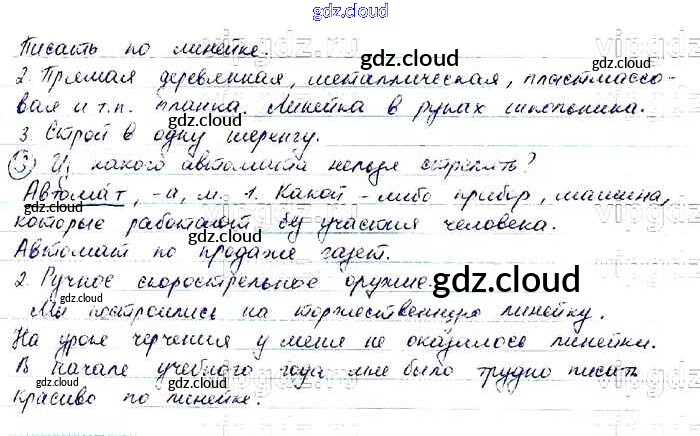 gdz.cloud
Писать по линейке.
2. Прямая деревянная, металлическая, пластмассо-
вая и т.п. планка. Линейка в руках школьника.
3. Строй в одну шеренгу.
3) Из какого автомата нельзя стрелять?
Автомат, -а, м. 1. Какой-либо прибор, машина,
которые работают без участия человека.
Автомат по продаже газет.
2. Ручное скорострельное оружие.
Мы построились на торжественную линейку.
На уроке черчения у меня не оказалось линейки.
В начале учебного года мне было трудно писать
красиво по линейке.